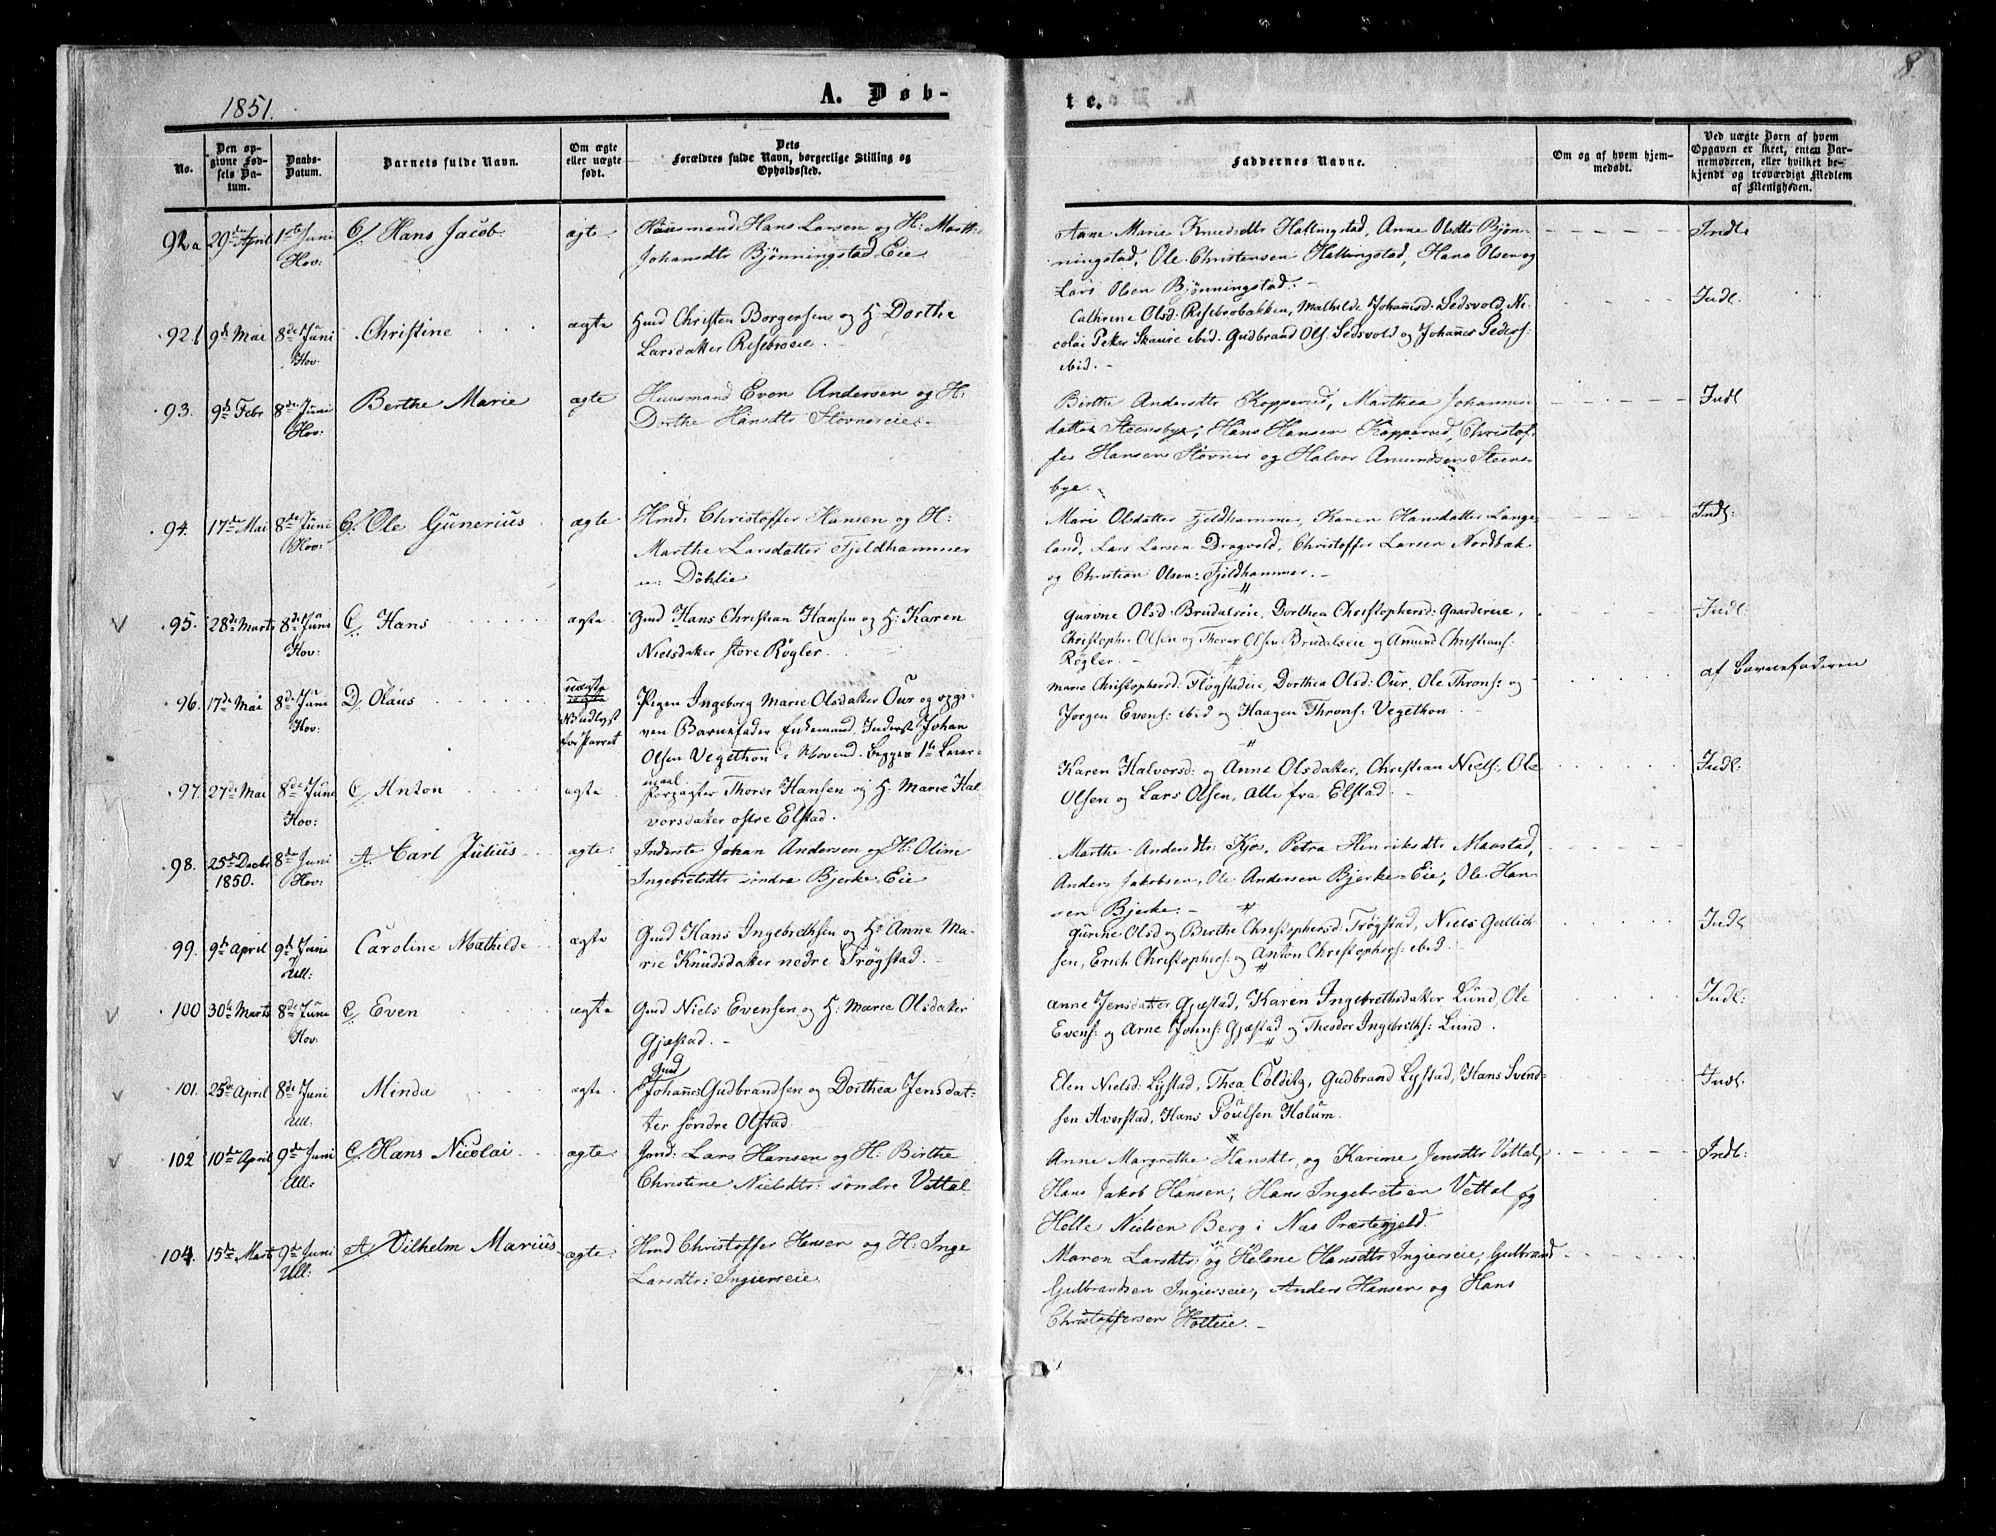 8.
1851.
A. Døb-
te.
No.
Den op-
givne Fød-
sels Da-
tum.
Daabs-
Datum.
Barnets fulde Navn.
Om ægte
eller uægte
født.
Dets
Forældres fulde Navn, borgerlige Stilling og
Opholdssted.
Faddernes Navne.
Om og af hvem hjem-
medøbt.
Ved uægte Born af hvem
Opgaven er skeet, enten Bar-
nemoderen, eller hvilket be-
kjendt og troværdigt Medlem
af Menigheden.
92a 29de April 1ste Juni Hov: C/ Hans Jacob. ægte
Huusmand Hans Larsen og H: Marthe
Johansdtr Bjønningstad Eie
Aane Marie Knudsdtr Hallingstad, Anne Olsdtr Bjøn-
ningstad, Ole Christensen Hallingstad, Hans Olsen og
Lars Olsen Bjønningstad.-
Indl.
92b 9de Mai 8de Juni Hov Christine ægte
Hmd Christen Borgersen og H. Dorthe
Larsdatter Risebroeie.
Cathrine Olsd: Risebrobakken, Mathilde Johannesd: Sedsvold, Ni-
colai Peter Skaure ibid. Gudbrand Ols. Sedsvold og Johannes Peders:
ibid.-
Indl:
93. 9de Febr 8de Juni Hov: Berthe Marie ægte
Huusmand Even Andersen og H:
Dorthe Hansdtr Stovnereie.
Birthe Andersdtr Kopperud, Marthea Johannes-
datter Steensbye, Hans Hansen Kopperud, Christof-
fer Hansen Stovner og Halvor Amundsen Steens-
bye.
Indl
94. 17de Mai 8de Juni Hov: C. Ole Gunerius ægte
Hmd: Christoffer Hansen og H:
Marthe Larsdatter Fjeldhammer
u: Döhlie
Mari Olsdatter Fjeldhammer, Karen Hansdatter Lange-
land, Lars Larsen Dragvold, Christoffer Larsen Nordbak
og Christian Olsen: Fjeldhammer.-
Indl:
95. 28de Marts 8de Juni Hov: C. Hans ægte
Gmd Hans Christian Hansen og H: Karen
Nielsdatter store Røgler.
Gurine Olsd: Brudalseie, Dorthea Christophersd: Gaardereie,
Christopher Olsen og Thorer Olsen Brudalseie og Amund Christians:
Røgler.-
Indl:
96. 17de Mai 8de Juni Hov: D. Olaus uægte
Pigen Ingeborg Marie Olsdatter Our og opgi-
ven Barnefader Enkemand, Inderst Johan
Olsen Vegethon i Hovind. Begges 1te Leier-
maal.
Marie Christophersd: Fløgstadeie, Dorthea Olsd: Our, Ole Throns: og
Jørgen Evens: ibid og Haagen Throns: Vegethon
af Barnefaderen
97. 27de Mai 8de Juni Hov: C. Anton ægte
Forpagter Thorer Hansen og H. Marie Hal
vorsdatter østre Elstad.
Karen Halvorsd: og Anne Olsdatter, Christian Niels:, Ole
Olsen og Lars Olsen, alle fra Elstad.
Indl:
98. 25de Decbr 1850. 8de Juni Hov: A. Carl Julius ægte.
Inderste Johan Andersen og H: Oline
Ingebretsdtr søndre Bjerke Eie
Marthe Andersdtr: Kjos, Petra Henriksdtr Maastad,
Anders Jakobsen, Ole Andersen Bjerke-Eie, Ole Han-
sen Bjerke.-
99. 9de April 9de Juni Ull: Caroline Mathilde ægte
Gmd Hans Ingebrethsen og H: Anne Ma-
rie Knudsdatter nedre Trøgstad.
Gurine Olsd og Birthe Christophersd: Trøgstad, Niels Gullich-
sen, Erich Christophers: og Anton Christophers: ibid.
Indl
100 30te Marts 8de Juni Hov. C. Even ægte
Gmd Niels Evensen og H: Marie Olsdatter
Gjæstad.-
Anne Jensdatter Gjæstad, Karen Ingebrethsdatter Lund, Ole
Evens: og Arne Johns: Gjæstad og Theodor Ingebreths: Lund.
Indl:
101. 25de April 8de Juni Ull: Minda ægte
Gmd
Johannes Gudbrandsen og Dorthea Jensdat-
ter søndre Olstad
Elen Nielsd: Lystad, Thea Colditz, Gudbrand Lystad, Hans Svend-
sen Averstad, Hans Poulsen Holum.
Indl.
102 10de April 9de Juni Ull: C. Hans Nicolai ægte
Gmd: Lars Hansen og H: Birthe
Christine Nielsdtr: søndre Vettal
Anne Margrethe Hansdtr, og Karine Jensdtr Vettal,
Hans Jakob Hansen, Hans Ingebretsen Vettal og
Helle Nielsen Berg i Nas Præstegjeld.
Indl:
104. 15de Marts 9de Juni Ull: A Vilhelm Marius ægte
Hmd Christoffer Hansen og H: Inge
Larsdtr: Ingierseie
Maren Larsdtr: og Helene Hansdtr Ingierseie, Gulbrand
Gulbrandsen Ingierseie, Anders Hansen og Hans
Christoffersen Holteie.-